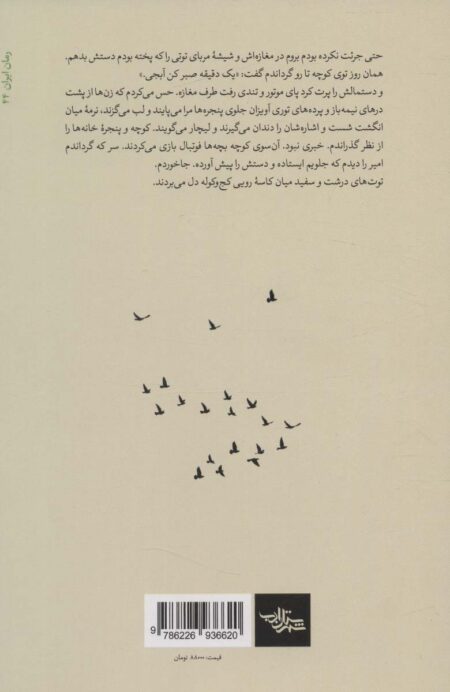 حتی جرئت نکرده بودم بروم در مغازه‌اش و شیشهٔ مربای توتی را که پخته بودم دستش بدهم.
همان روز توی کوچه تا رو گرداندم گفت: «یک دقیقه صبر کن آبجی.»
و دستمالش را پرت کرد پای موتور و تندی رفت طرف مغازه. حس می‌کردم که زن‌ها از پشت
درهای نیمه‌باز و پرده‌های توری آویزان جلوی پنجره‌ها مرا می‌پایند و لب می‌گزند، نرمهٔ میان
انگشت شست و اشاره‌شان را دندان می‌گیرند و لیچار می‌گویند. کوچه و پنجرهٔ خانه‌ها را
از نظر گذراندم. خبری نبود. آن‌سوی کوچه بچه‌ها فوتبال بازی می‌کردند. سر که گرداندم
امیر را دیدم که جلویم ایستاده و دستش را پیش آورده. جاخوردم.
توت‌های درشت و سفید میان کاسهٔ رویی کج‌وکوله دل می‌بردند.
رمان ایران ۴۴
شهرستان ادب
9 786226 936620
قیمت: ۸۸۰۰۰ تومان